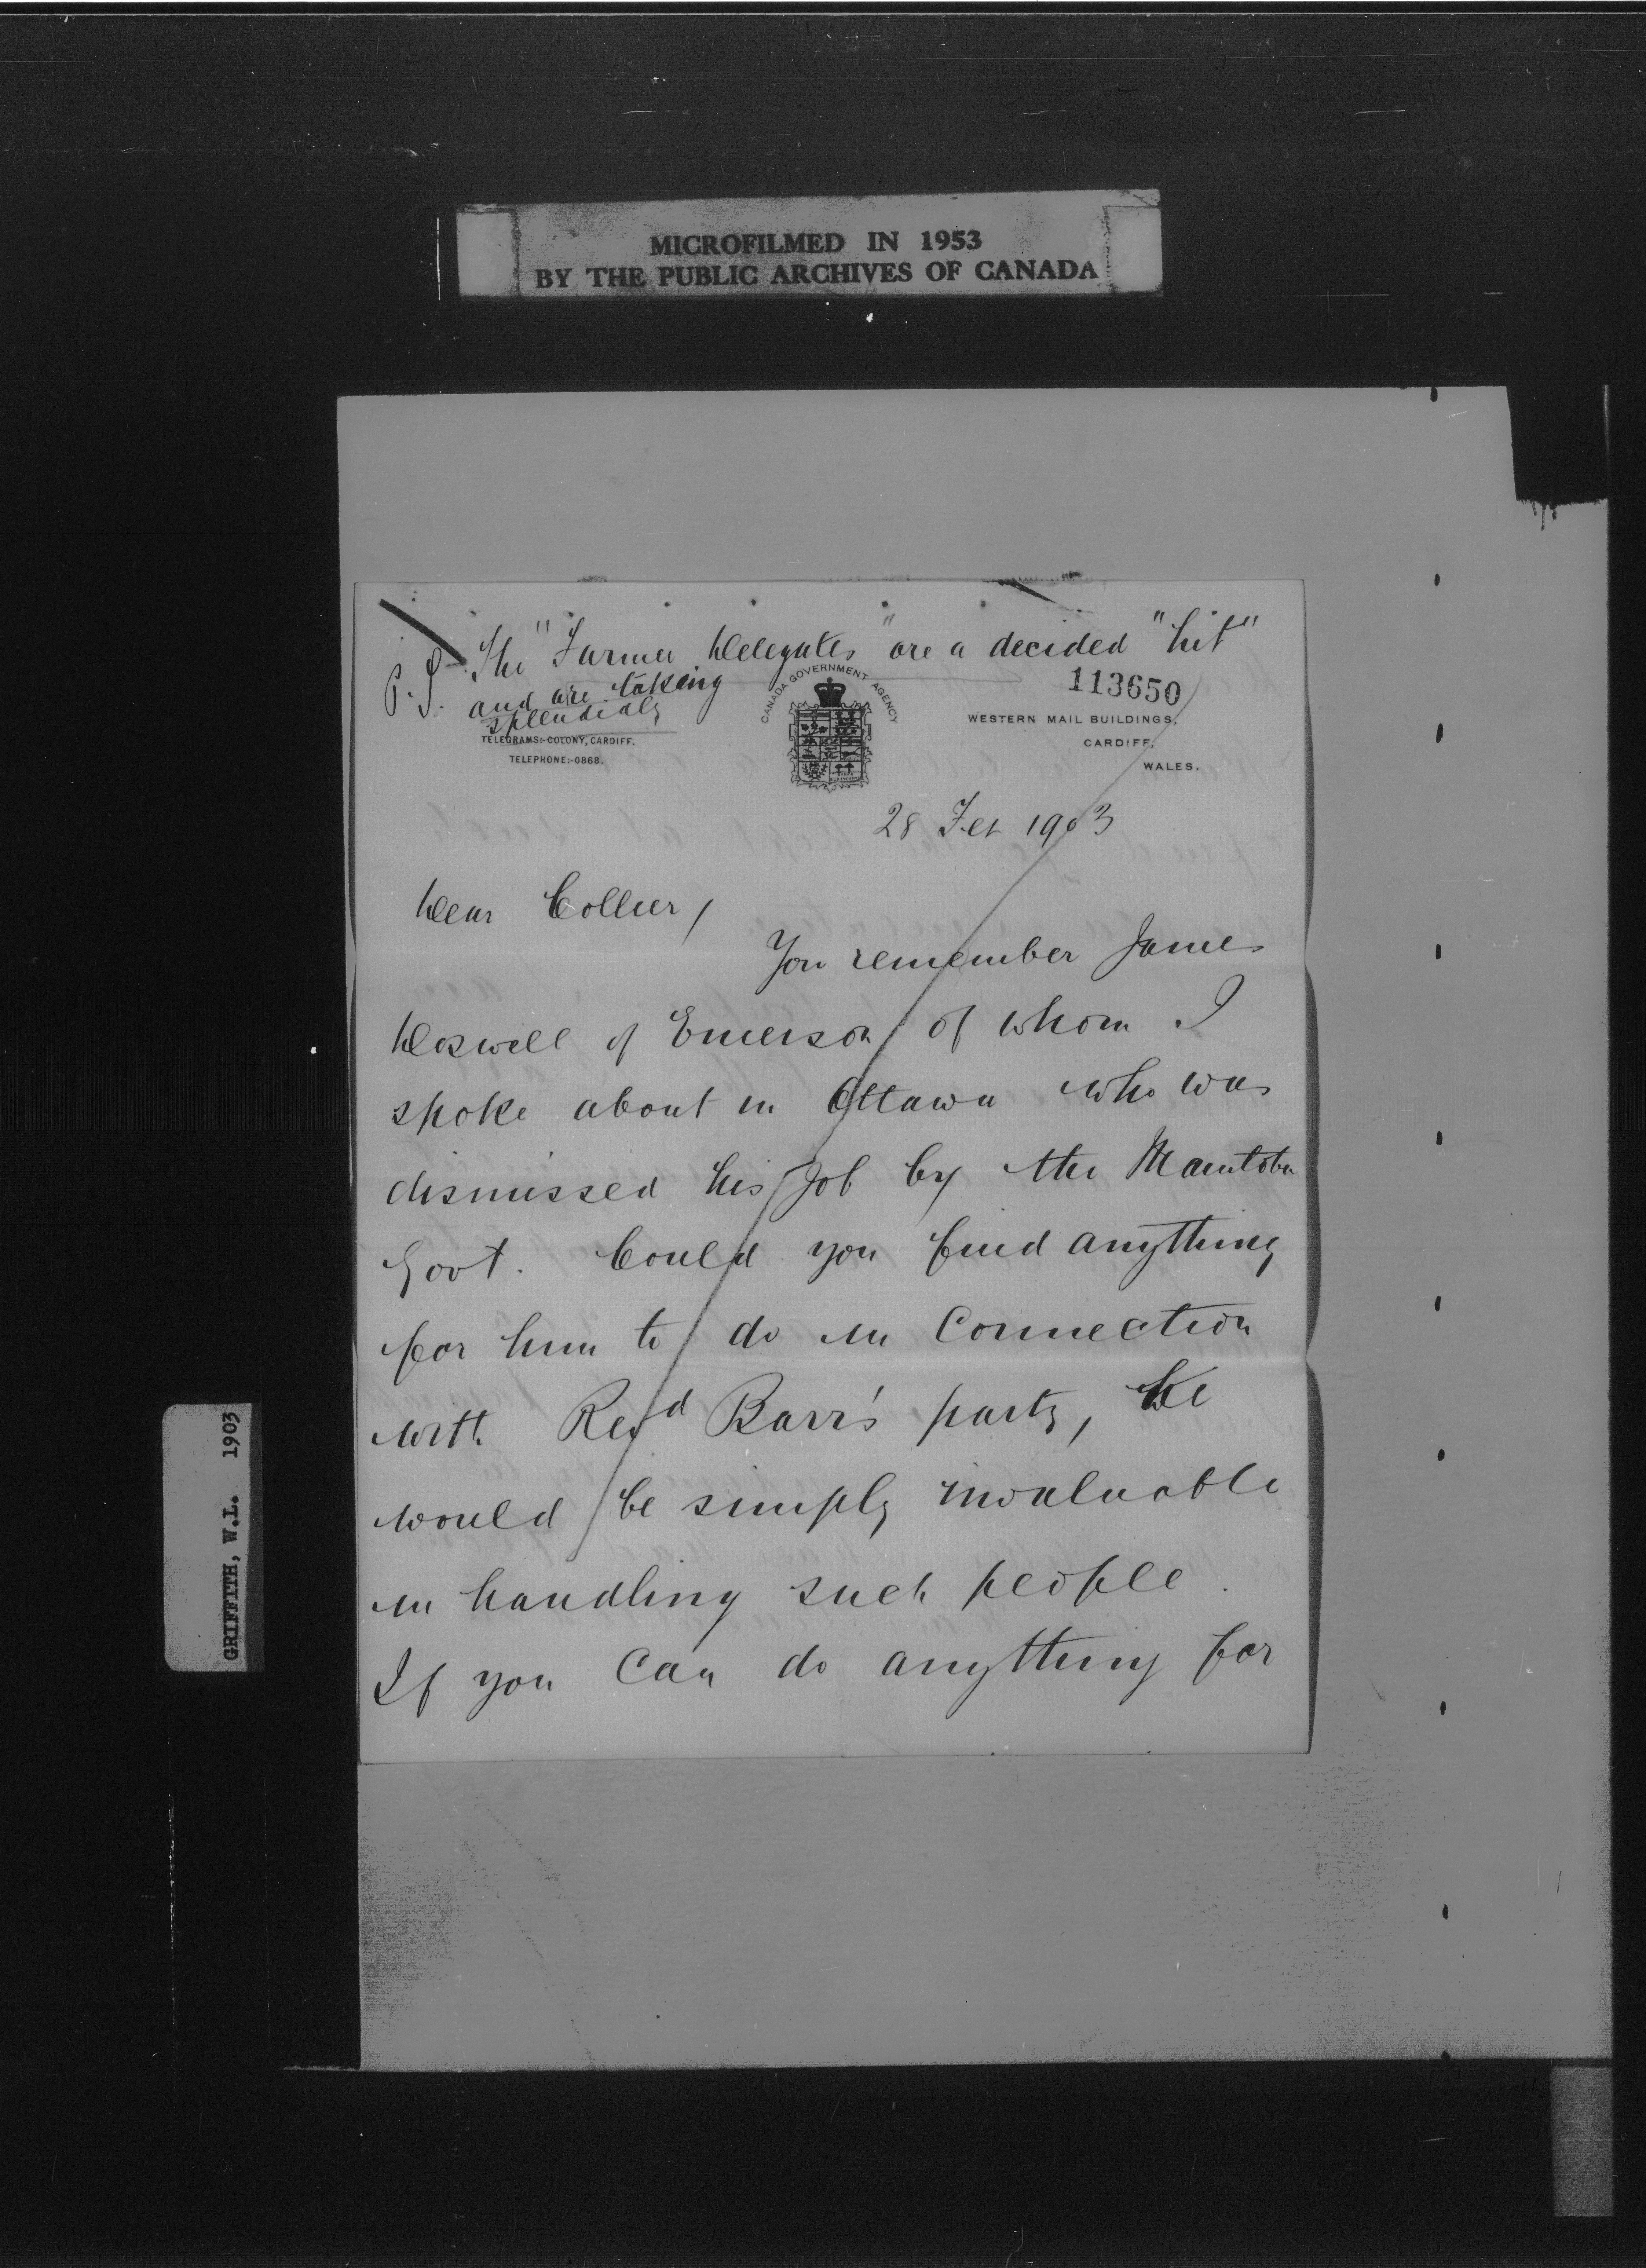 MICROFILMED IN 1953
BY THE PUBLIC ARCHIVES OF CANADA
P.S. The "Farmer Delegates" are a decided "hit"
and are taking
splendidly
113650
CANADA GOVERNMENT AGENCY
WESTERN MAIL BUILDINGS,
CARDIFF,
WALES.
TELEGRAMS:-COLONY, CARDIFF.
TELEPHONE:-0868.
28 Feb 1903
Dear Collier,
You remember James
Doswell of Emerson of whom I
spoke about in Ottawa who was
dismissed his job by the Manitoba
Govt. Could you find anything
for him to do in connection
with Revd Barr's party, He
would be simply invaluable
in handling such people.
If you can do anything for
GRIFFITH, W.L. 1903